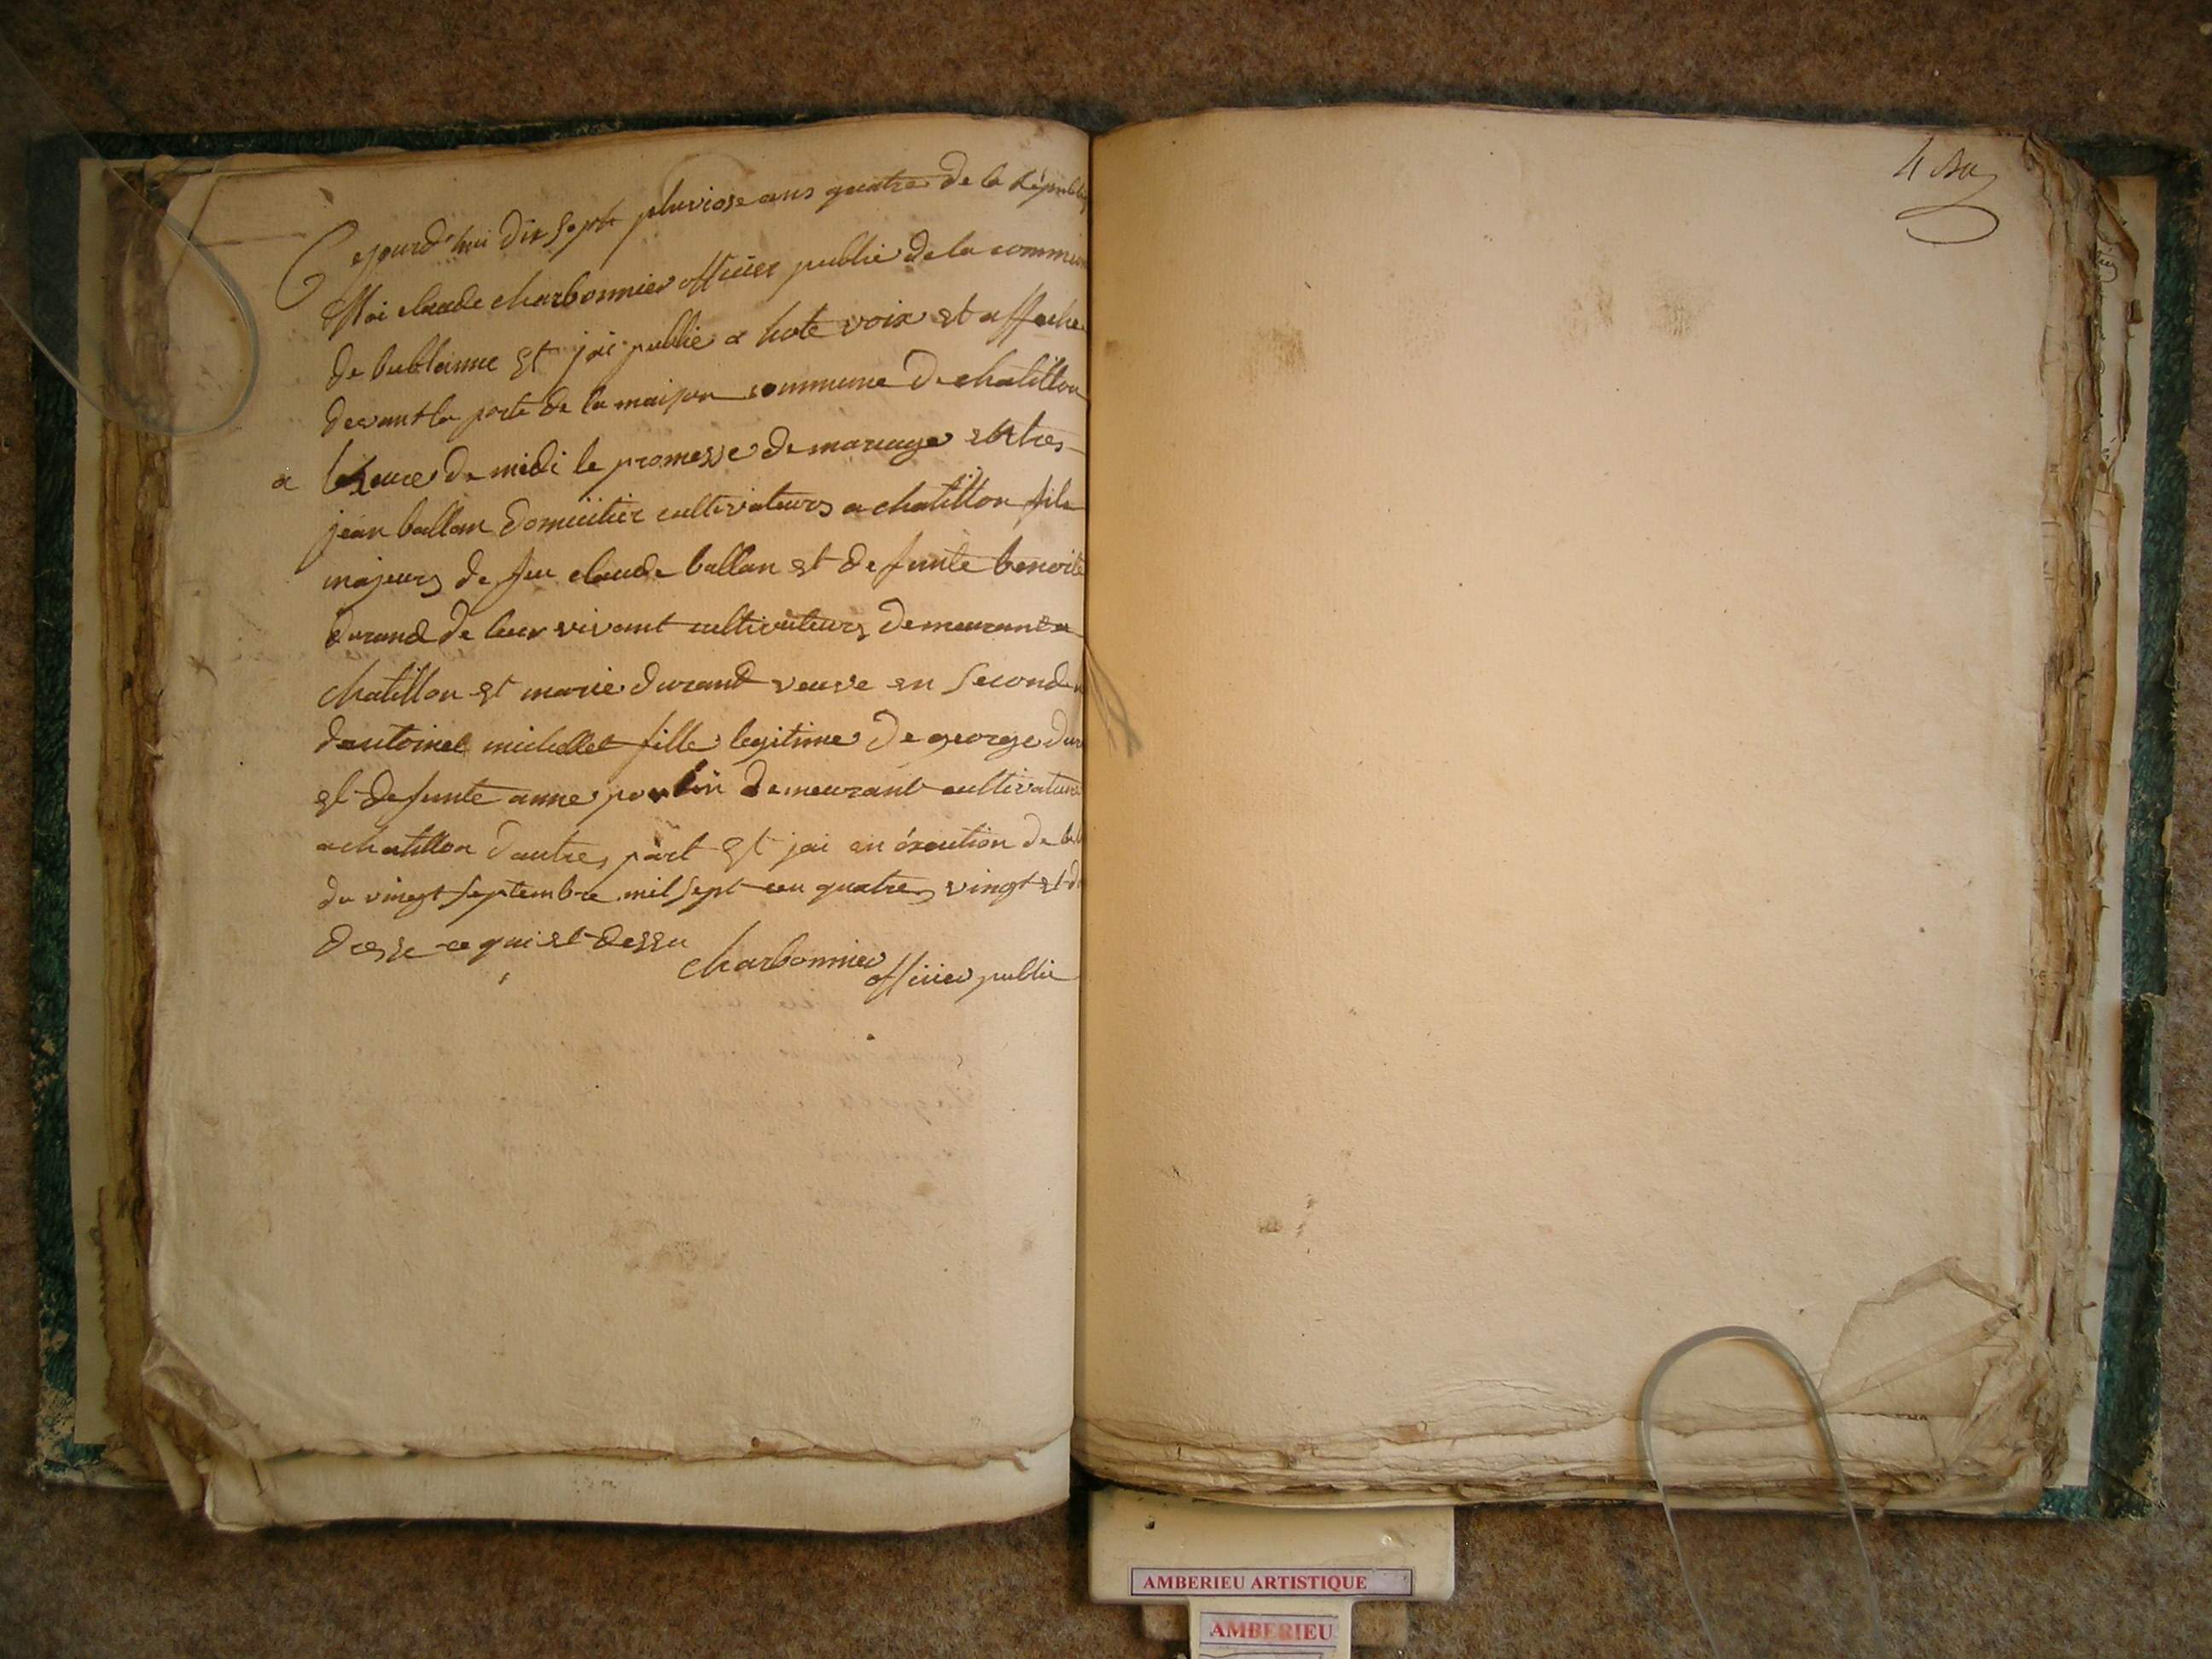 Cejourd'hui dix sept pluviose ans quatre de la Républi
Moi claude charbonnier officier public de la commun
de bublanne Et jai publie a hote voix et affiche
devant la porte de la maison commune de chatillon
a lheure de midi le promesse de mariage entre
jean ballan domicilier cultivateurs a chatillon fils
majeurs de feu claude ballan et defunte benoite
durand de leur vivant cultivateurs demeurant a
chatillon et marie durand veuve en seconde
dantoinet michellet fille legitime de george dur
et defunte anne demeurant cultivateur
a chatillon dautre part Et jai en éxecution de la
du vingt septembre mil sept cen quatre vingt et d
dresse ce qui et dessu
charbonnier
officier public
AMBERIEU ARTISTIQUE
AMBERIEU